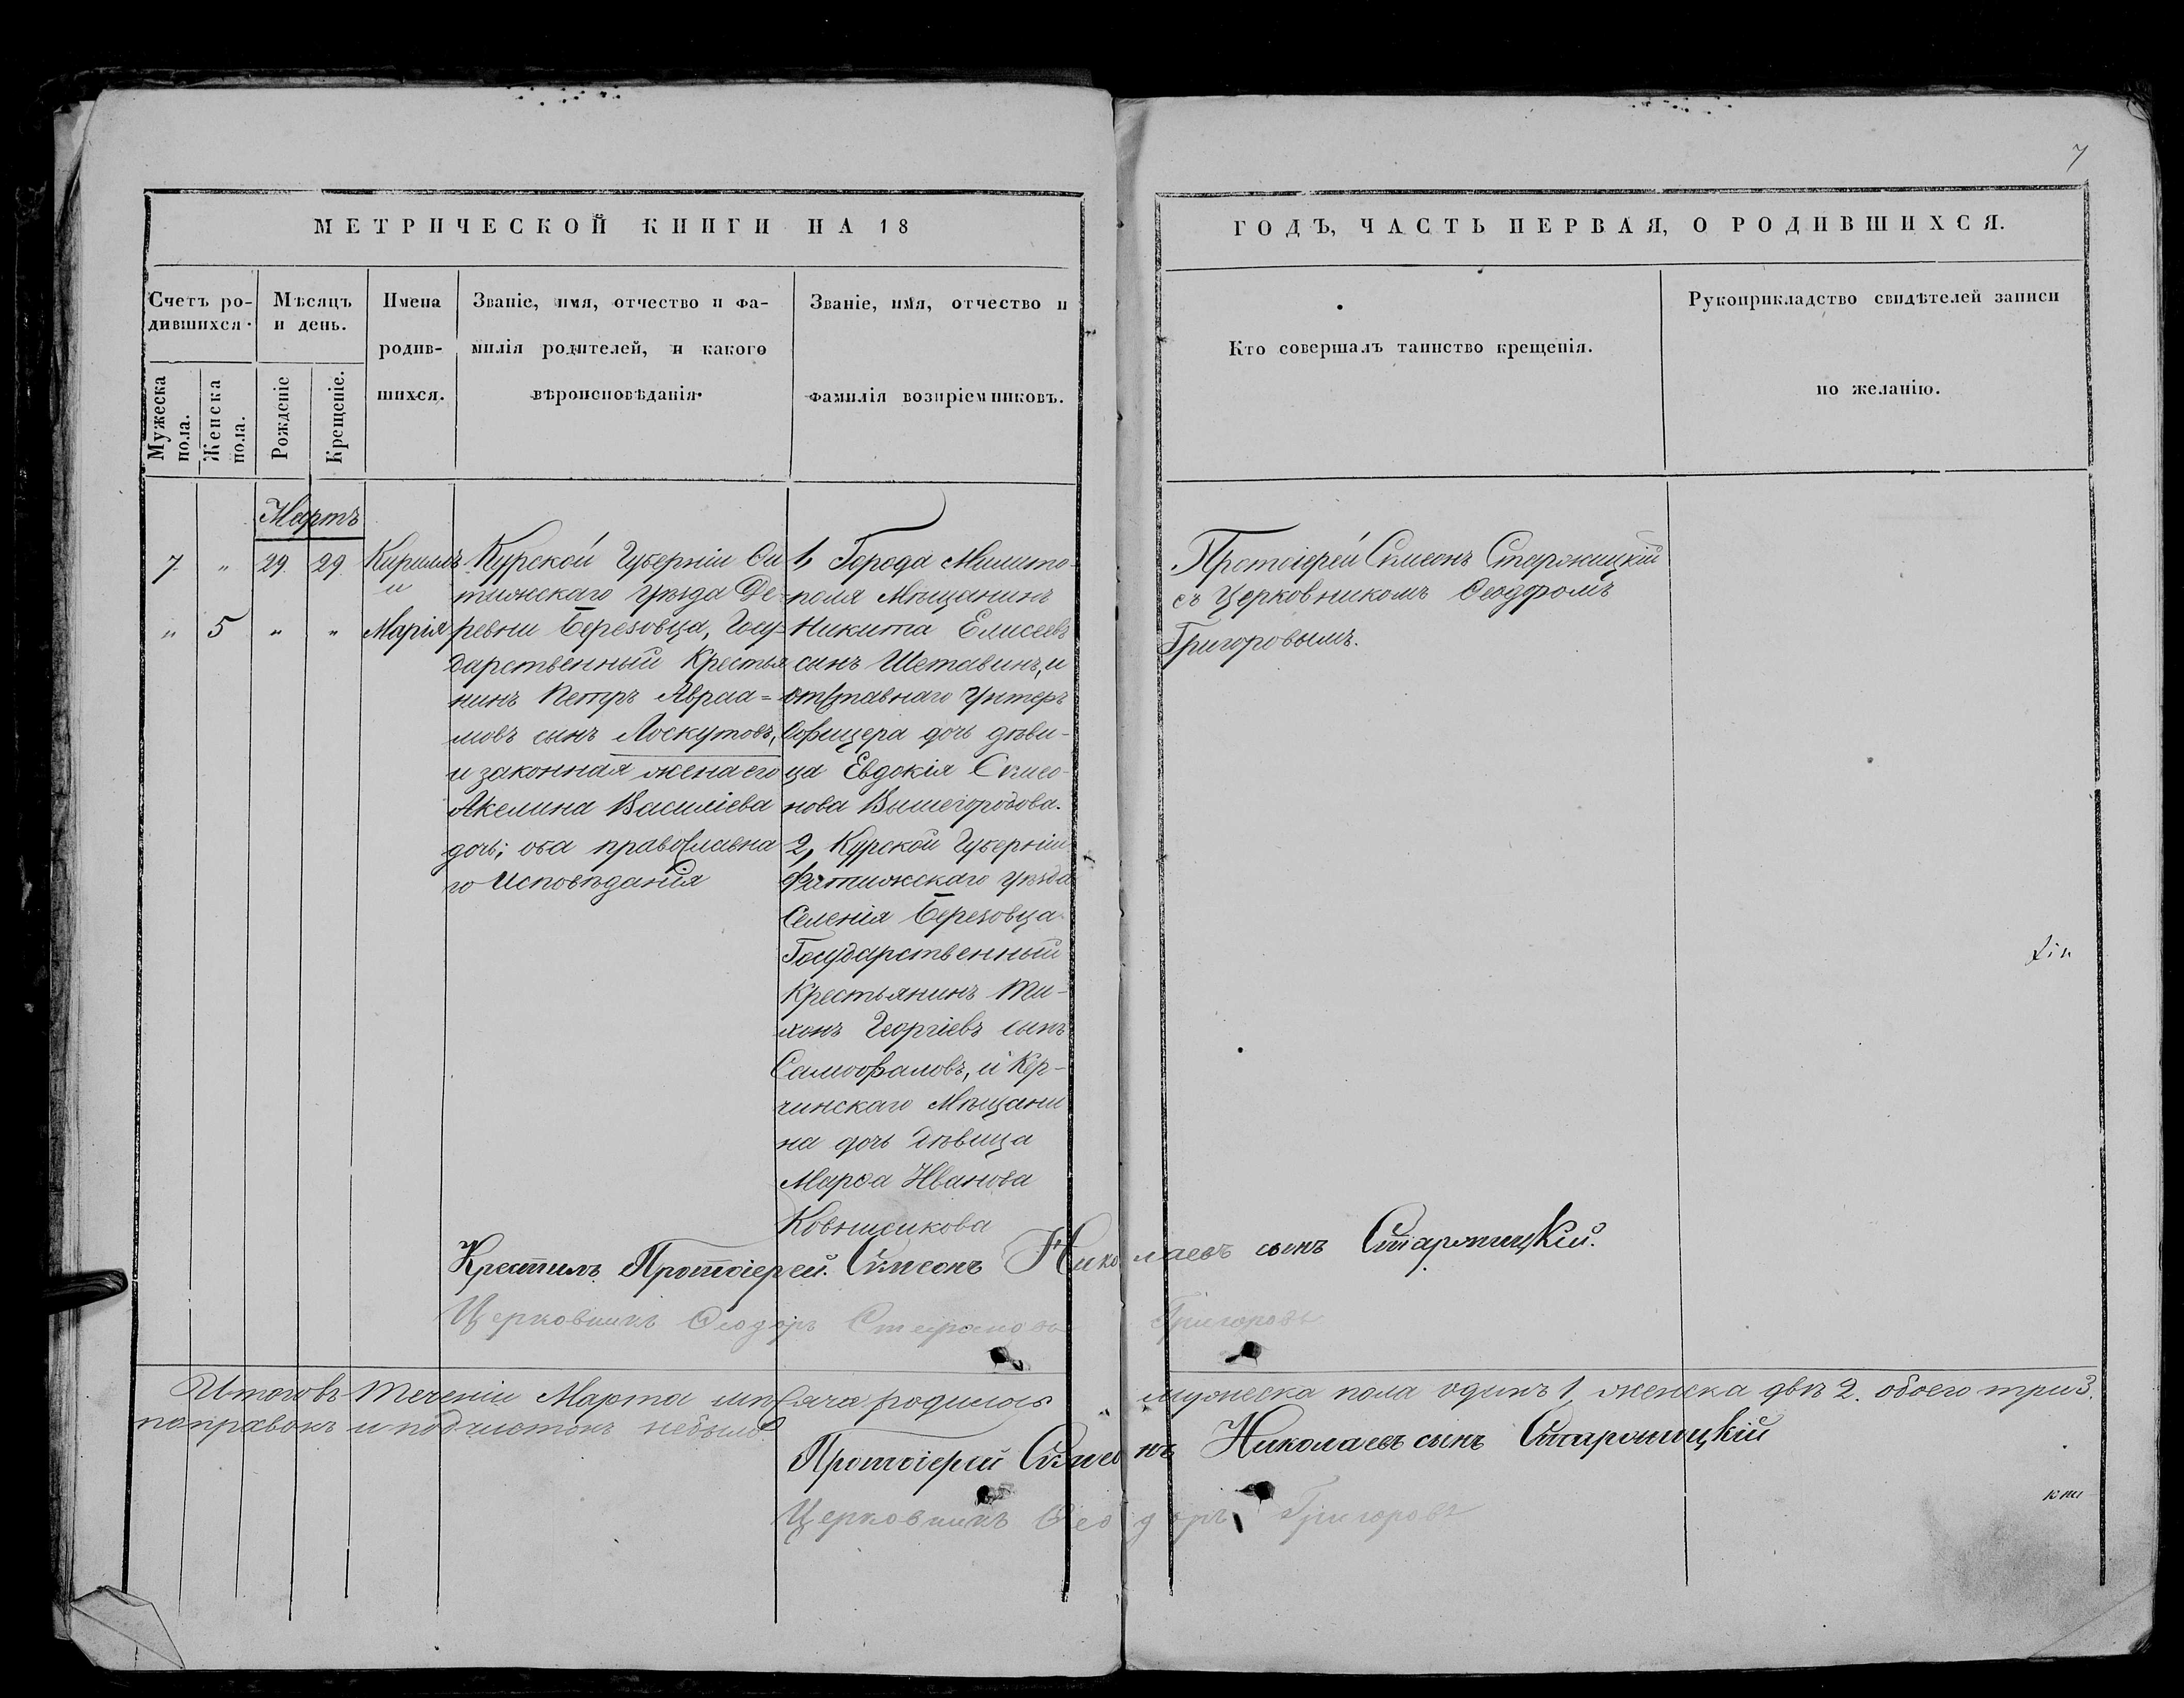 7
МЕТРИЧЕСКОЙ КНИГИ НА 18
ГОДЪ, ЧАСТЬ ПЕРВАЯ, О РОДИВШИХСЯ.
Счетъ ро-
дившихся.
Мужеска
пола.
Женска
пола.
Мѣсяцъ
и день.
Рожденіе
Крещеніе.
Имена
родив-
шихся.
Званіе, имя, отчество и фа-
милія родителей, и какого
вѣроисповѣданія.
Званіе, имя, отчество и
фамилія воспріемниковъ.
Кто совершалъ таинство крещенія.
Рукоприкладство свидѣтелей записи
по желанію.
Мартъ
7 " 29 29 Кириллъ
и
" 5 " " Марія
Курской Губерніи Фа
тижскаго уѣзда Де-
ревни Березовца, Госу-
дарственный Крестья
нинъ Петръ Авраа=
мовъ сынъ Лоскутовъ,
и законная жена его
Акелина Василіева
дочь; оба православна
го Исповѣданія
1, Города Мелито-
поля Мѣщанинъ
Никита Елисеевъ
сынъ Шетавинъ, и
отставнаго Унтеръ
Офицера дочь дѣви-
ца Евдокія Сѵмео-
нова Вышегородова.
2, Курской Губерніи
Фатижскаго уѣзда
Селенія Березовца
Государственный
Крестьянинъ Ти-
хонъ Георгіевъ сынъ
Самофаловъ, и Кер-
чинскаго Мѣщани
на дочь дѣвица
Марѳа Иванова
Протоіерей Сѵмеонъ Старжицкій
съ Церковникомъ Ѳеодоромъ
Григоровымъ.
Крестилъ Протоіерей Сѵмеонъ Николаевъ сынъ
Церковникъ Ѳеодоръ Стефановъ Григоровъ
Итого въ теченіи Марта мѣсяца родилось мужеска пола одинъ 1, женска двѣ 2. обоего три 3.
поправокъ и подчистокъ небыло
Протоіерей Сѵмеонъ Николаевъ сынъ
Церковникъ Ѳеодоръ Григоровъ